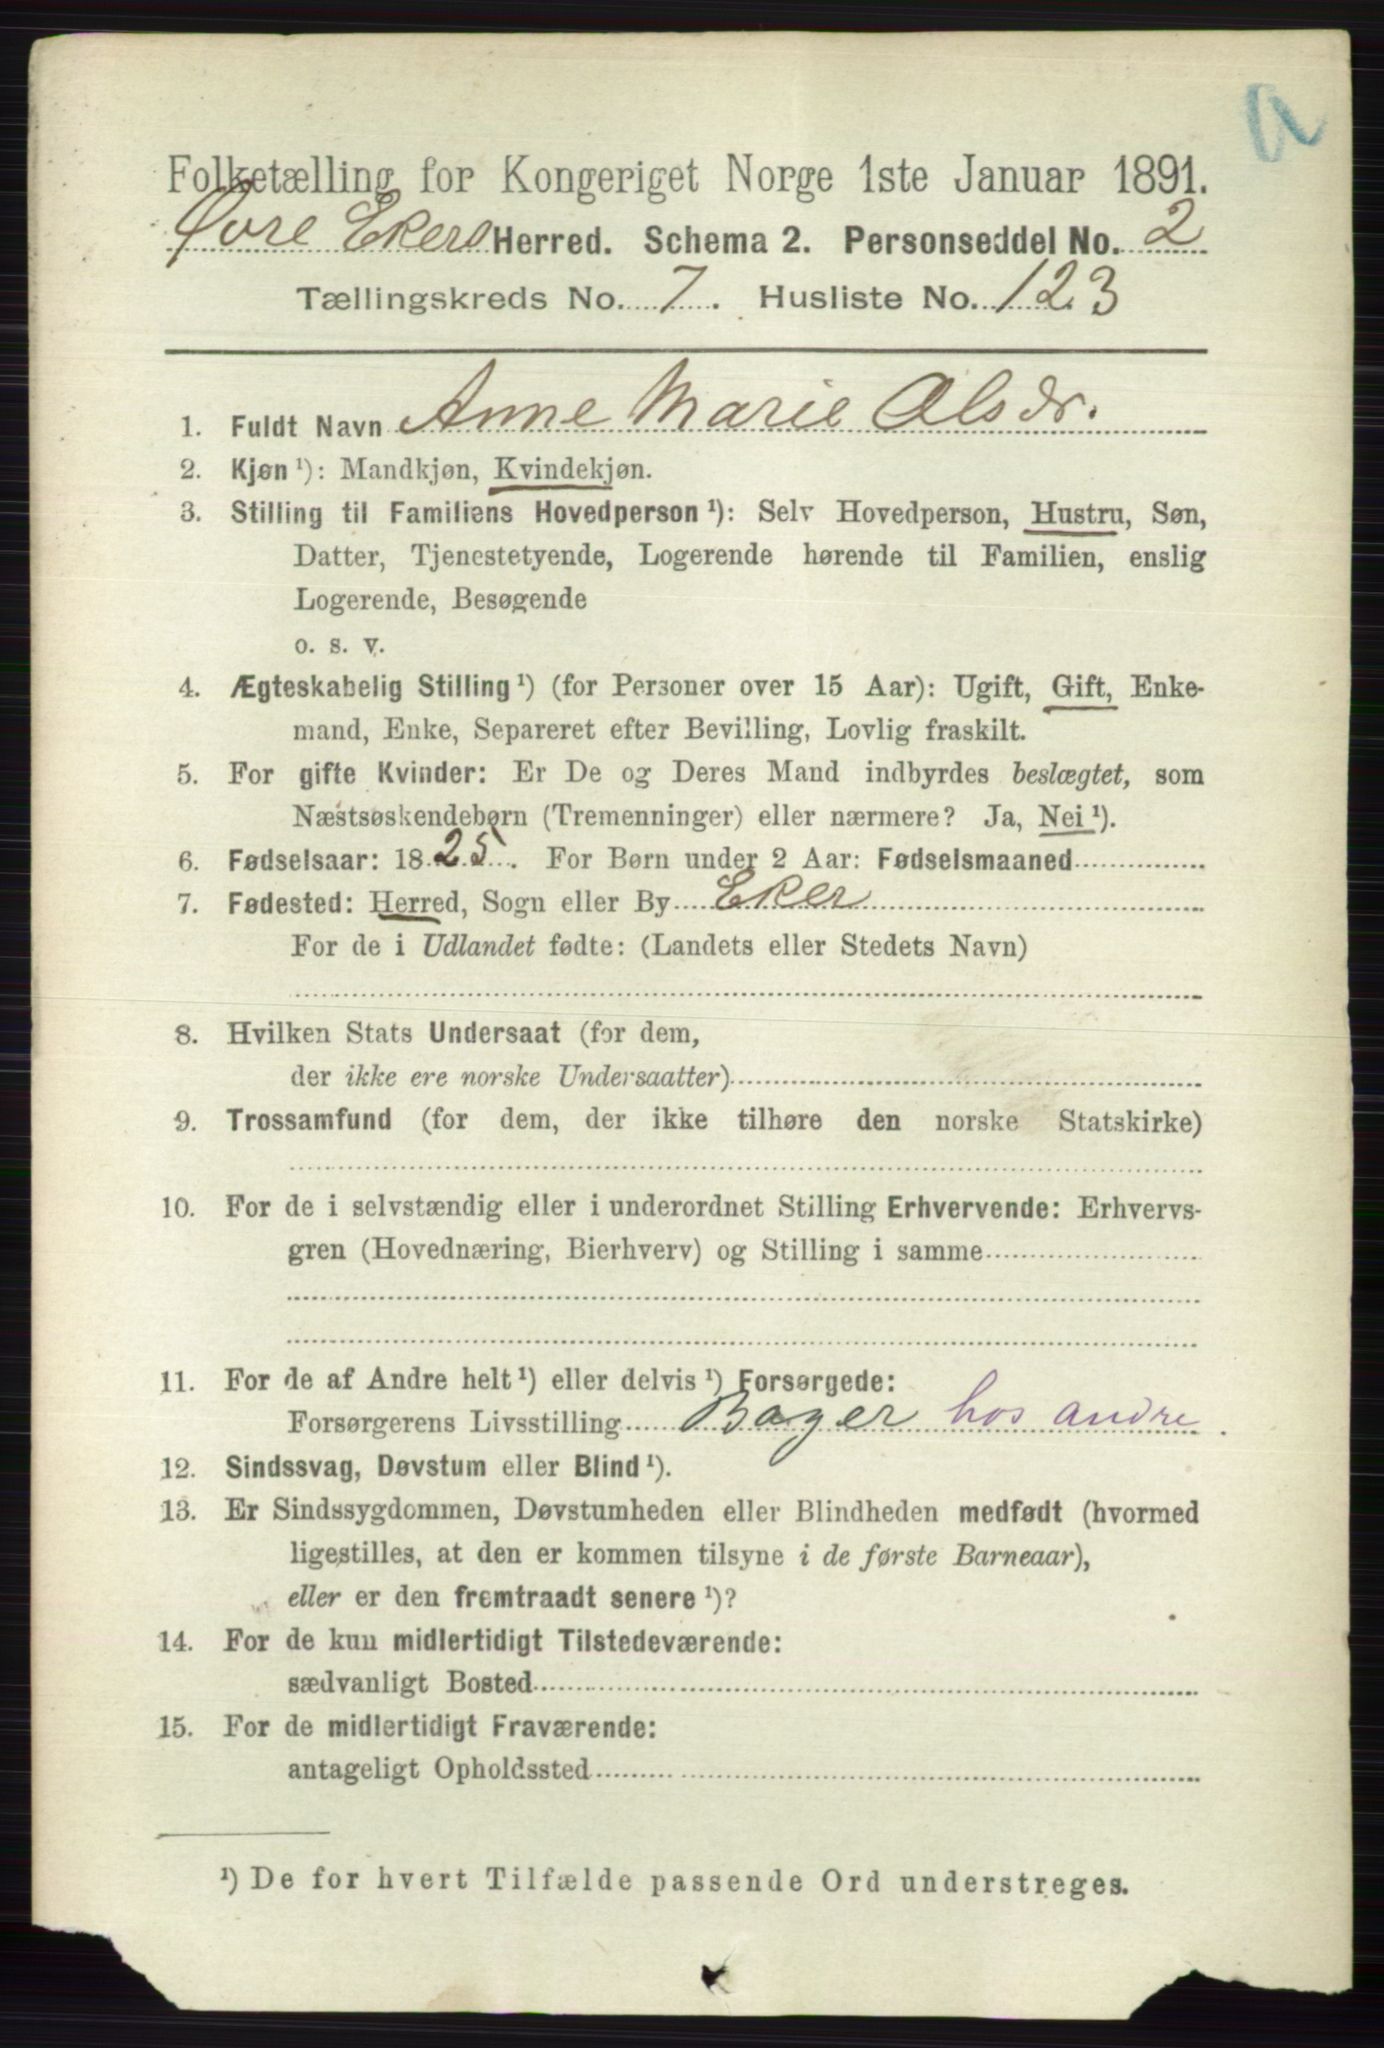 a
Folketælling for Kongeriget Norge 1ste Januar 1891.
Øvre Ekers Herred. Schema 2. Personseddel No. 2
Tællingskreds No. 7. Husliste No. 123
1. Fuldt Navn Anne Marie Olsdr.
2. Kjøn ¹): Mandkjøn, Kvindekjøn.
3. Stilling til Familiens Hovedperson ¹): Selv Hovedperson, Hustru, Søn,
Datter, Tjenestetyende, Logerende hørende til Familien, enslig
Logerende, Besøgende
o. s. v.
4. Ægteskabelig Stilling ¹) (for Personer over 15 Aar): Ugift, Gift, Enke-
mand, Enke, Separeret efter Bevilling, Lovlig fraskilt.
5. For gifte Kvinder: Er De og Deres Mand indbyrdes beslægtet, som
Næstsøskendebørn (Tremenninger) eller nærmere? Ja, Nei ¹).
6. Fødselsaar: 1825. For Børn under 2 Aar: Fødselsmaaned
7. Fødested: Herred, Sogn eller By Eker
For de i Udlandet fødte: (Landets eller Stedets Navn)
8. Hvilken Stats Undersaat (for dem,
der ikke ere norske Undersaatter)
9. Trossamfund (for dem, der ikke tilhøre den norske Statskirke)
10. For de i selvstændig eller i underordnet Stilling Erhvervende: Erhvervs-
gren (Hovednæring, Bierhverv) og Stilling i samme
11. For de af Andre helt ¹) eller delvis ¹) Forsørgede:
Forsørgerens Livsstilling Bager hos andre
12. Sindssvag, Døvstum eller Blind ¹).
13. Er Sindssygdommen, Døvstumheden eller Blindheden medfødt (hvormed
ligestilles, at den er kommen tilsyne i de første Barneaar),
eller er den fremtraadt senere ¹)?
14. For de kun midlertidigt Tilstedeværende:
sædvanligt Bosted
15. For de midlertidigt Fraværende:
antageligt Opholdssted
¹) De for hvert Tilfælde passende Ord understreges.